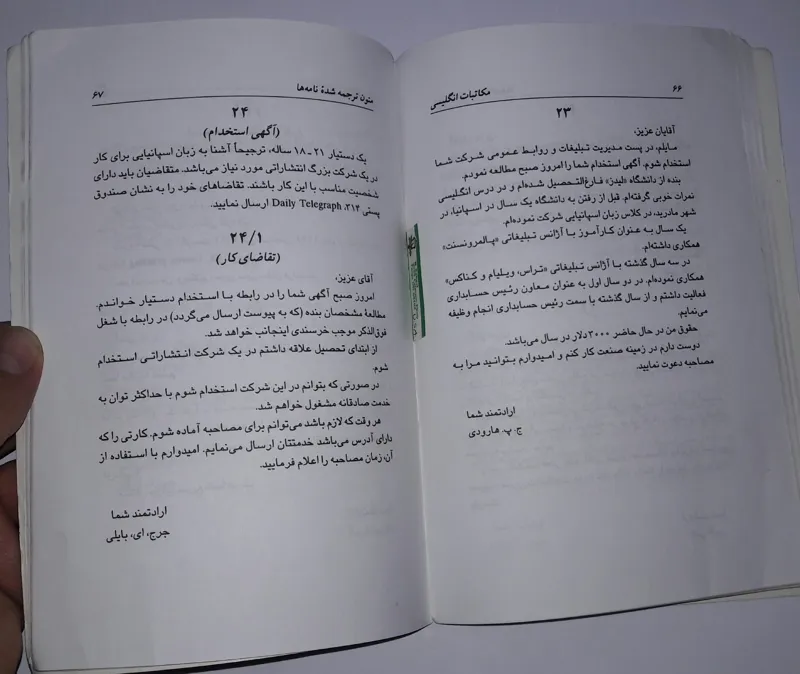 ۶۶
مکاتبات انگلیسی
۲۳
آقایان عزیز،
مایلم، در پست مدیریت تبلیغات و روابط عمومی شرکت شما
استخدام شوم. آگهی استخدام شما را امروز صبح مطالعه نمودم.
بنده از دانشگاه «لیدز» فارغ‌التحصیل شده‌ام و در درس انگلیسی
نمرات خوبی گرفته‌ام. قبل از رفتن به دانشگاه یک سال در اسپانیا، در
شهر مادرید، در کلاس زبان اسپانیایی شرکت نموده‌ام.
یک سال به عنوان کارآموز با آژانس تبلیغاتی «پالمرونسنت»
همکاری داشته‌ام.
در سه سال گذشته با آژانس تبلیغاتی «تراس، ویلیام و کناکس»
همکاری نموده‌ام. در دو سال اول به عنوان معاون رئیس حسابداری
فعالیت داشتم و از سال گذشته با سمت رئیس حسابداری انجام وظیفه
می‌نمایم.
حقوق من در حال حاضر ۳۰۰۰ دلار در سال می‌باشد.
دوست دارم در زمینه صنعت کار کنم و امیدوارم بتوانید مرا به
مصاحبه دعوت نمایید.
ارادتمند شما
ج. پ. هارودی
متون ترجمه شدهٔ نامه‌ها
۶۷
۲۴
(آگهی استخدام)
یک دستیار ۲۱ ـ ۱۸ ساله، ترجیحاً آشنا به زبان اسپانیایی برای کار
در یک شرکت بزرگ انتشاراتی مورد نیاز می‌باشد. متقاضیان باید دارای
شخصیت مناسب با این کار باشند. تقاضاهای خود را به نشان صندوق
پستی ۳۱۴، Daily Telegraph ارسال نمایید.
۲۴/۱
(تقاضای کار)
آقای عزیز،
امروز صبح آگهی شما را در رابطه با استخدام دستیار خواندم.
مطالعهٔ مشخصان بنده (که به پیوست ارسال می‌گردد) در رابطه با شغل
فوق‌الذکر موجب خرسندی اینجانب خواهد شد.
از ابتدای تحصیل علاقه داشتم در یک شرکت انتشاراتی استخدام
شوم.
در صورتی که بتوانم در این شرکت استخدام شوم با حداکثر توان به
خدمت صادقانه مشغول خواهم شد.
هر وقت که لازم باشد می‌توانم برای مصاحبه آماده شوم. کارتی را که
دارای آدرس می‌باشد خدمتتان ارسال می‌نمایم. امیدوارم با استفاده از
آن، زمان مصاحبه را اعلام فرمایید.
ارادتمند شما
جرج، ای، بایلی